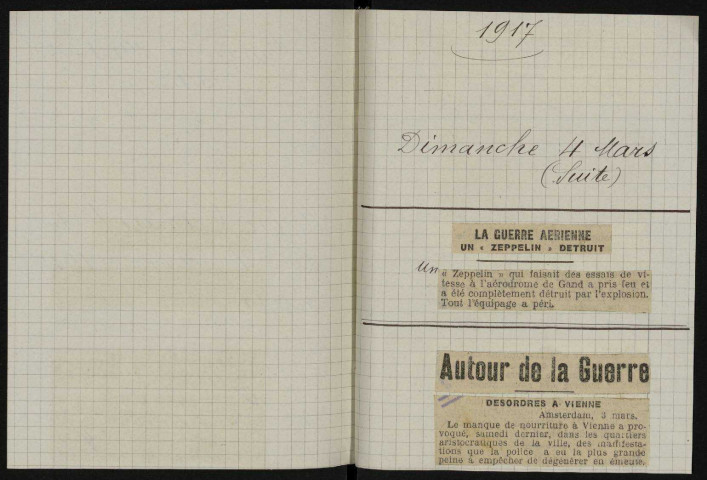 1917
Dimanche 4 Mars
(Suite)
LA GUERRE AERIENNE
UN « ZEPPELIN » DETRUIT
Un « Zeppelin » qui faisait des essais de vi-
tesse à l'aérodrome de Gand a pris feu et
a été complètement détruit par l'explosion.
Tout l'équipage a péri.
Autour de la Guerre
DESORDRES A VIENNE
Amsterdam, 3 mars.
Le manque de nourriture à Vienne a pro-
voqué, samedi dernier, dans les quartiers
aristocratiques de la ville, des manifesta-
tions que la police a eu la plus grande
peine à empêcher de dégénérer en émeute.